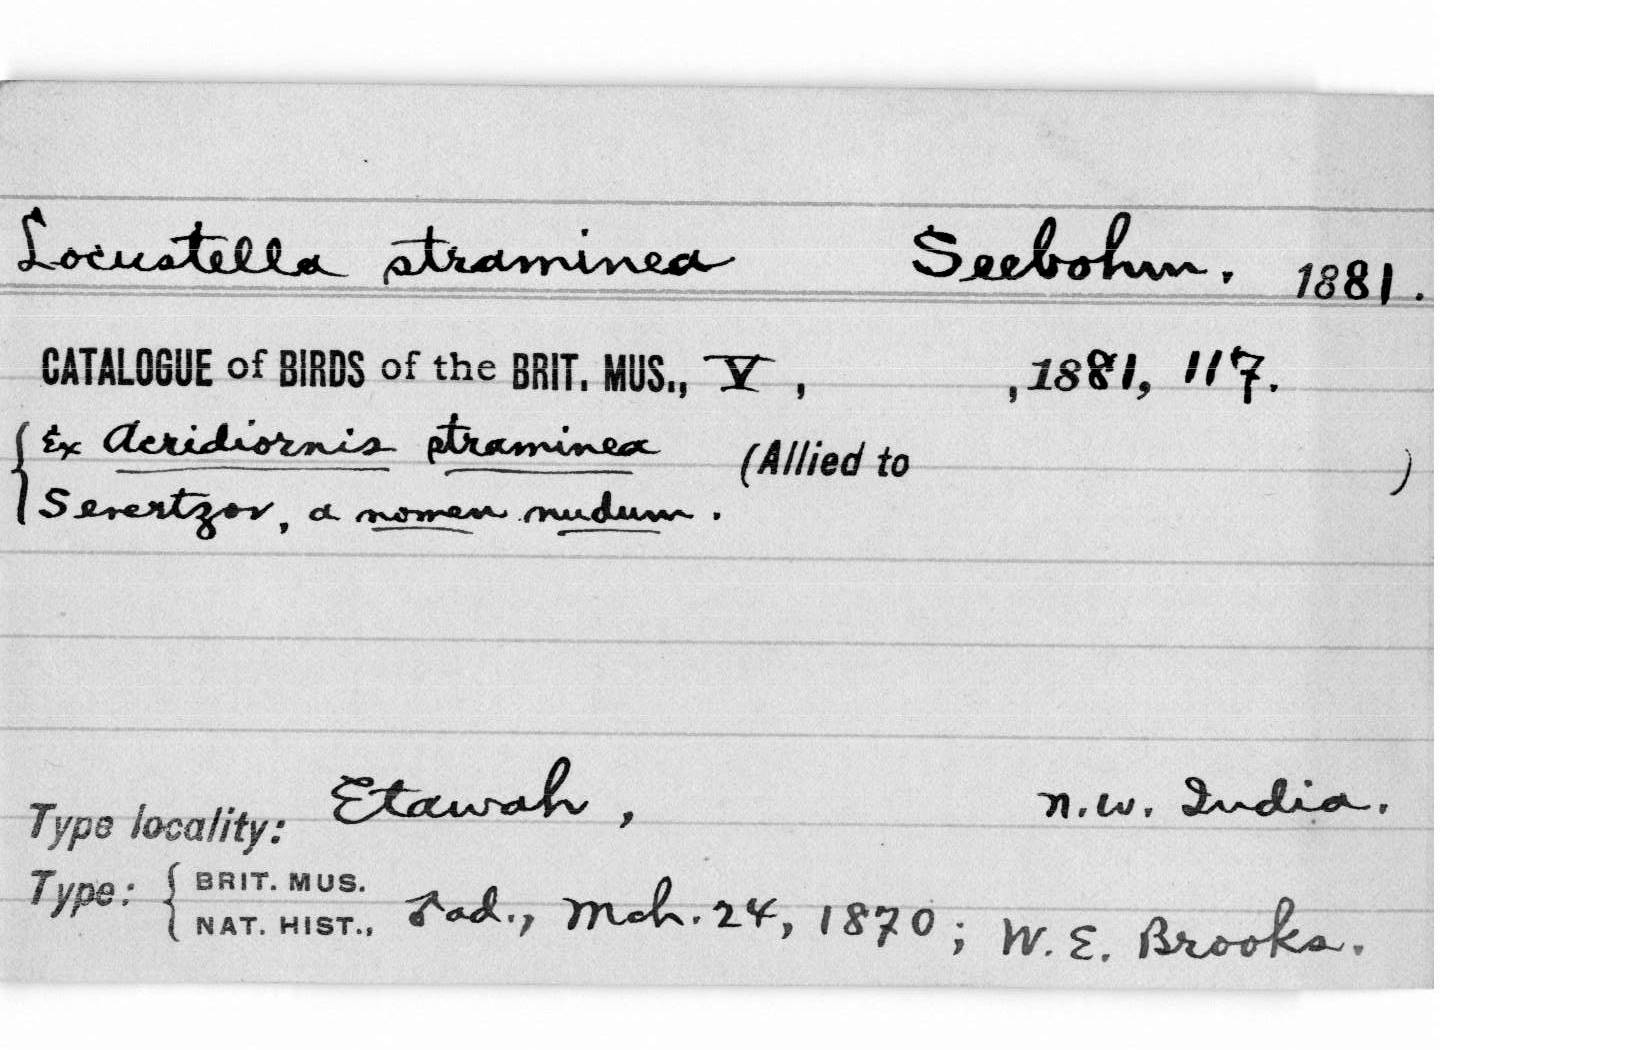 Locustella straminea Seebohm. 1881.
CATALOGUE of BIRDS of the BRIT. MUS., V, , 1881, 117.
{ Ex Acridiornis straminea (Allied to )
Severtzov, a nomen nudum.
Type locality: Etawah, N.W. India.
Type: { BRIT. MUS.
NAT. HIST., ♂ ad., Mch. 24, 1870; W. E. Brooks.